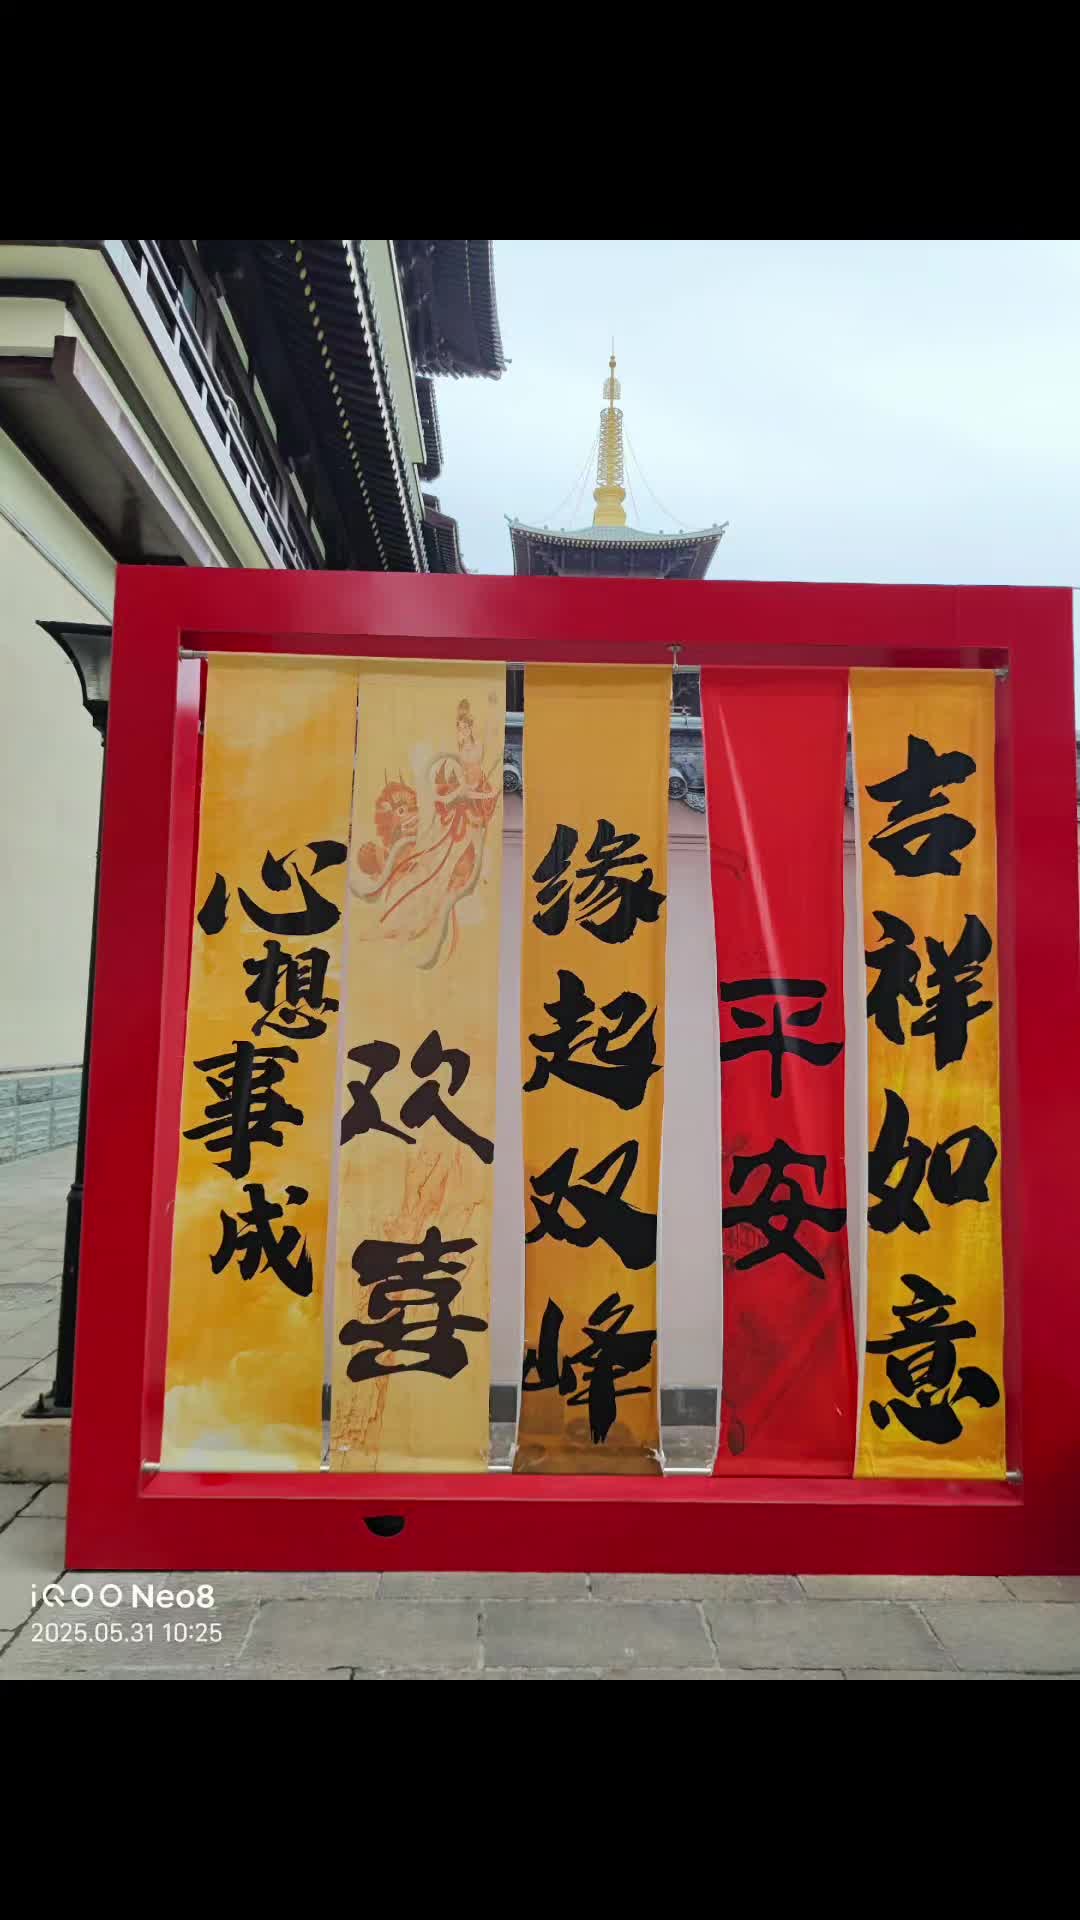 心想事成
欢喜
缘起双峰
平安
吉祥如意
iQOO Neo8
2025.05.31 10:25